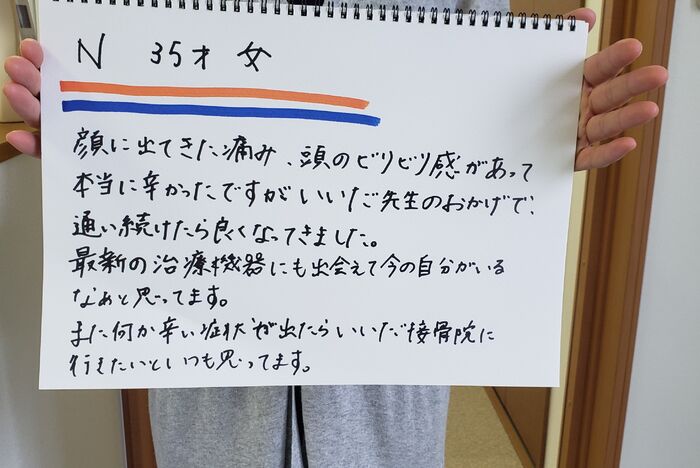 N 35才 女
顔に出てきた痛み、頭のビリビリ感があって
本当に辛かったですがいいだご先生のおかげで、
通い続けたら良くなってきました。
最新の治療機器にも出会えて今の自分がいる
なぁと思ってます。
また何か辛い症状が出たらいいだご接骨院に
行きたいといつも思ってます。